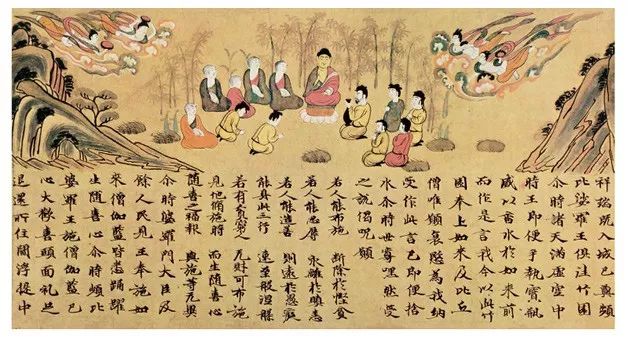 祥瑞既入城已與頻
比娑羅王俱往竹園
尒時諸天滿虛空中
時王即便手執寶瓶
盛以香水於如来前
而作是言我今以此竹
園奉上如来及比丘
僧唯願哀愍為我納
受作此言已即便捨
水尒時世尊嘿然受
之說偈呪願
若人能布施 斷除於慳貪
若人能忍辱 永離於瞋恚
若人能造善 則遠於愚癡
能具此三行 速至般涅槃
若有貧窮人 无財可布施
見他脩施時 而生随喜心
随喜之福報 與施等无異
尒時婆羅門大臣及
餘人民見王奉施如
来僧伽藍皆悉踊躍
生随喜心尒時頻比
婆羅王施僧伽藍已
心大歡喜頭面礼足
退還所住閻浮提中